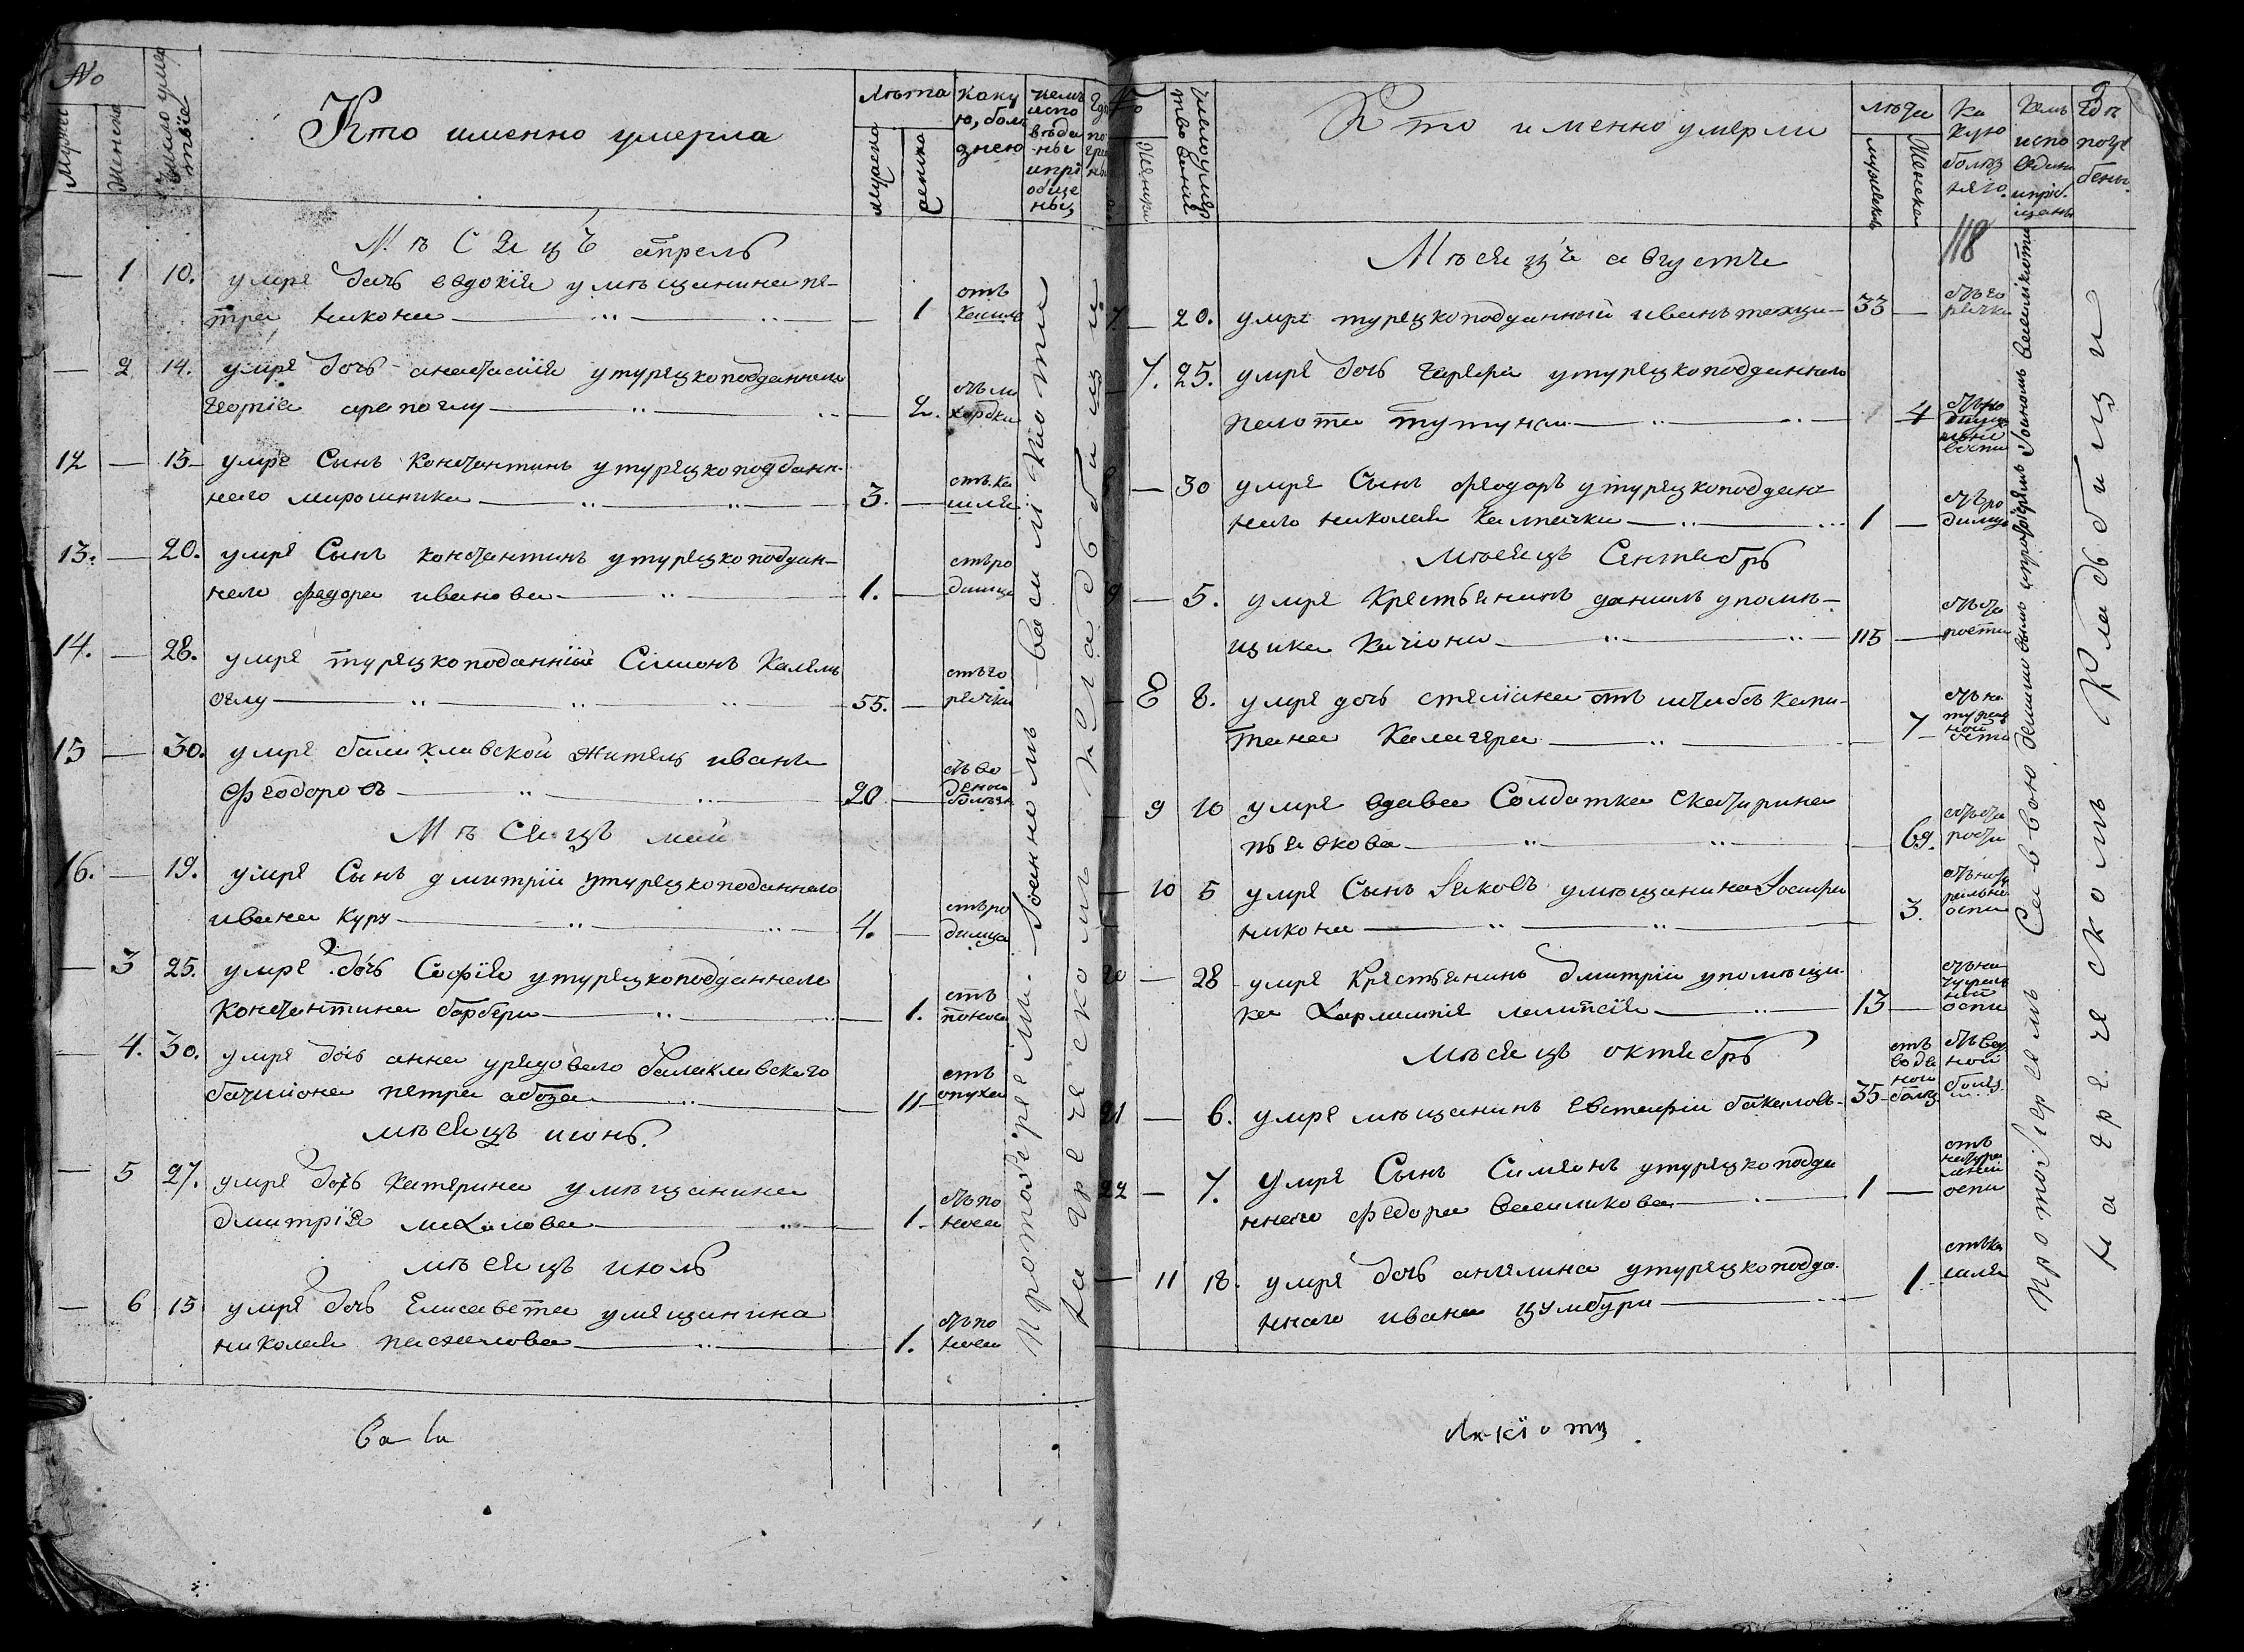 No
Мужес
Женска
Число умертвiе
Кто именно умерла
лѣта
мужска
женска
какую, болезнею
кемъ исповѣданы и прiобщены
Мѣсяцъ апрель
— 1 10. умре дочь евдокiя у мѣщанина пе-
тра никона — 1 отъ кашля
— 2 14. умре дочь анастасiя у турецкоподданнаго
георгiа арапоглу — 2. отъ лихорадки
12 — 15 умре Сынъ Константинъ у турецкоподдан-
наго мирошника — 3. — отъ кашля
13. — 20. умре Сынъ константинъ у турецкоподдан-
наго федора иванова — 1. — отъ родимца
14. — 28. умре турецкоподаннiй Симионъ Калелъ
оглу — 55. — отъ горячки
15 — 30. умре балаклавской житель иванъ
Феодоровъ — 20 — отъ водяной болезн
Мѣсяцъ май
16. — 19. умре Сынъ дмитрiи у турецкоподаннаго
ивана куру — 4. — отъ родимца
— 3 25. умре дочь Софiя у турецкоподданнаго
константина барбери — 1. отъ поноса
— 4. 30. умре дочь анна урядоваго балаклавскаго
баталiона петра абоза — 11 отъ опухса
мѣсяцъ июнь.
— 5 27. умре дочь катерина у мѣщанина
дмитрiя михалова — 1. отъ поноса
мѣсяцъ июль
— 6 15 умре дочь Елисавета у мещанина
николая пасхалова — 1. отъ поноса
Протоiереемъ Iоанномъ василiкioти
на греческомъ кладбищи
Ва ли
No
Женски
число умертвений
Кто именно умерли
лѣта
мужеска
Женска
Какую болезнею.
Кемъ исповеданы и прiобщаны
Гдѣ погребены.
118
Мѣсяцъ августъ
— 20. умре турецкоподданный иванъ текци — 33 — отъ горячки
7. 25. умре дочь гарефа у турецкоподданнаго
панота тутунжи — 4 отъ
— 30 умре Сынъ феодоръ у турецкоподдан-
наго николая калпачки — 1 — отъ родимца
мѣсяцъ Сентябрь
— 5. умре Крестьянинъ данiилъ у помѣ-
щика Качiони — 115 — отъ старости
8 8. умре дочь стелiана отъ штабсъ капи-
тана Калагера — 7 отъ натуральной оспы
9 10 умре вдава Солдатка Екатирина
пьянкова — 69. отъ старости
— 10 5 умре Сынъ Яковъ у мѣщанина Iосифа
никона — 3. отъ натуральна оспи
20 — 28 умре Крестьянинъ дмитрiи у помѣщи-
ка Харлампiя лампсiя — 13 — отъ натуральной оспи
мѣсяцъ октябрь
21 — 6. умре мѣщанинъ Евстафiи бакаловъ — 35 отъ водяной болѣз. отъ водяной болез.
22 — 7. умре Сынъ Симеонъ у турецкоподда
ннаго федора василикова — 1 — отъ натуралной оспи
— 11 18. умре дочь ангелина у турецкоподда-
ннаго ивана цумбури — 1. отъ кашля
Протоiереемъ
на греческомъ Кладбищи
лакioти